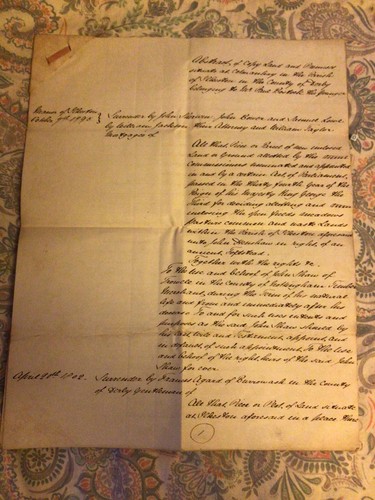 Abstract of Copy hold and Premises
situate at Cotmanhay in the Parish
of Ilkeston in the County of Derby
belonging to Mr
Manor of Ilkeston
October 9th
Surrender by John John and Samuel
by William Jackson their Attorney and William Taylor
Mortgagee of
All that Piece or Parcel of an enclosed
Land or Ground allotted by the
Commissioners nominated and appointed
in and by a certain Act of Parliament
passed in the thirty fourth year of the
Reign of his Majesty King George the
Third for dividing allotting and
enclosing the Open fields meadows
pastures common and waste Lands
within the Parish of Ilkeston aforesaid
unto John in right of an
ancient
Together with the rights &c
To the Use and behoof of John Shaw of
Trowell in the County of Nottingham Timber
Merchant, during the Term of his natural
life and from and immediately after his
decease To and for such Uses intents and
purposes as the said John Shaw should by
his last Will and Testament appoint and
in default of such appointment To the Use
and behoof of the right heirs of the said John
Shaw for ever
April 28th
Surrender by Francis of in the County
of Derby Gentleman of
All that Piece or Pcel of Land situate
at Ilkeston aforesaid in a place there
1